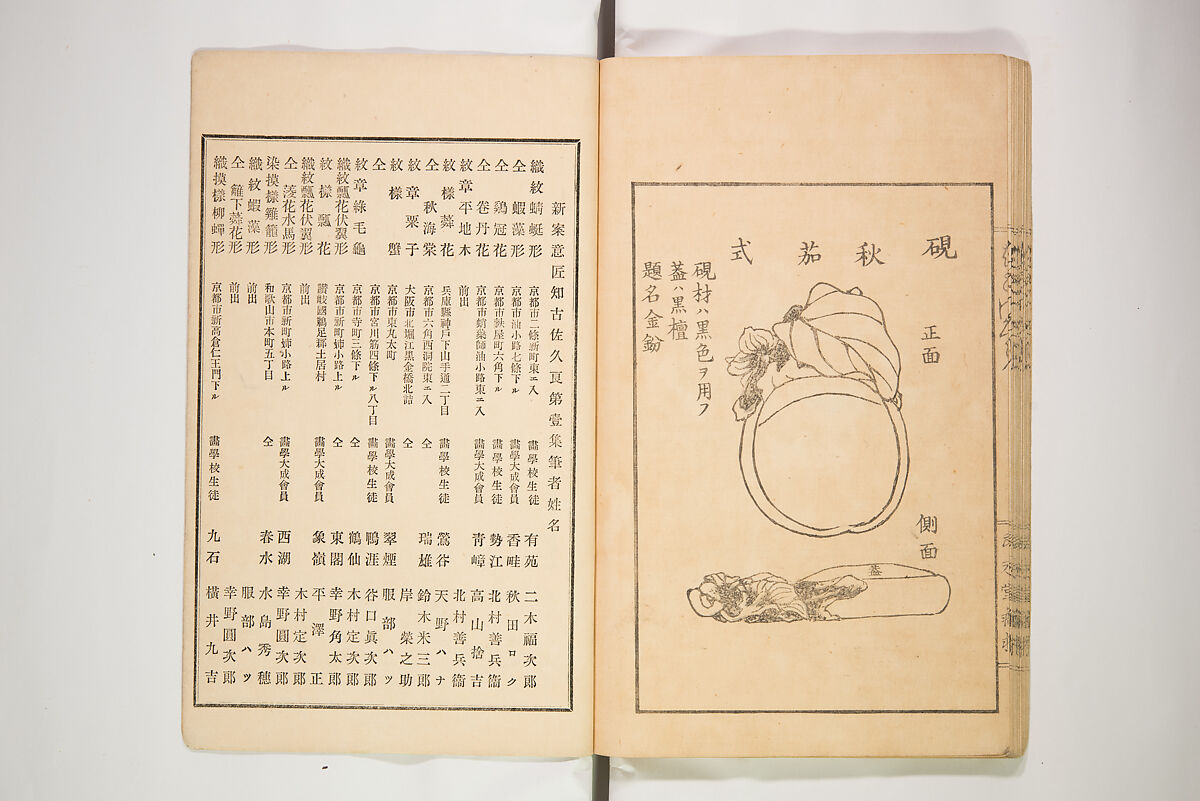 硯
秋
茄
式
正面
硯材ハ黒色ヲ用フ
葢ハ黒檀
題名金鈖
側面
葢
新案意匠知古佐久良第壹集筆者姓名
織紋蜻蜓形 京都市二條新町東ニ入 畵學校生徒 有苑 二木福次郎
仝 蝦藻形 京都市油小路七條下ル 畵學大成會員 香畦 秋田ロク
仝 鷄冠花 京都市麩屋町六角下ル 畵學校生徒 勢江 北村善兵衞
仝 卷丹花 京都市蛸藥師油小路東ニ入 畵學大成會員 靑嶂 高山捨吉
紋章平地木 前出 北村善兵衞
紋樣蕣花 兵庫縣神戸下山手通二丁目 畵學校生徒 鶯谷 天野ハナ
仝 秋海棠 京都市六角西洞院東ニ入 仝 瑞雄 鈴木米三郎
紋章栗子 大阪市北堀江黒金橋北詰 仝 岸榮之助
紋樣蟹 京都市東丸太町 畵學大成會員 翠煙 服部ハツ
仝 京都市宮川筋四條下ル八丁目 畵學校生徒 鴨涯 谷口眞次郎
紋章綠毛龜 京都市寺町三條下ル 仝 鶴仙 木村定次郎
織紋瓢花伏翼形 京都市新町姉小路上ル 仝 東閣 幸野角太郎
紋樣瓢花 讃岐國鵜足郡土居村 畵學大成會員 象嶺 平澤正
織紋瓢花伏翼形 前出 木村定次郎
仝 菱花水馬形 京都市新町姉小路上ル 畵學大成會員 西湖 幸野圓次郎
染摸樣雞籠形 和歌山市本町五丁目 仝 春水 水島秀穗
織紋蝦藻形 前出 服部ハツ
仝 籬下蕣花形 前出 幸野圓次郎
織摸樣柳蟬形 京都市新高倉仁王門下ル 畵學校生徒 九石 橫井九吉